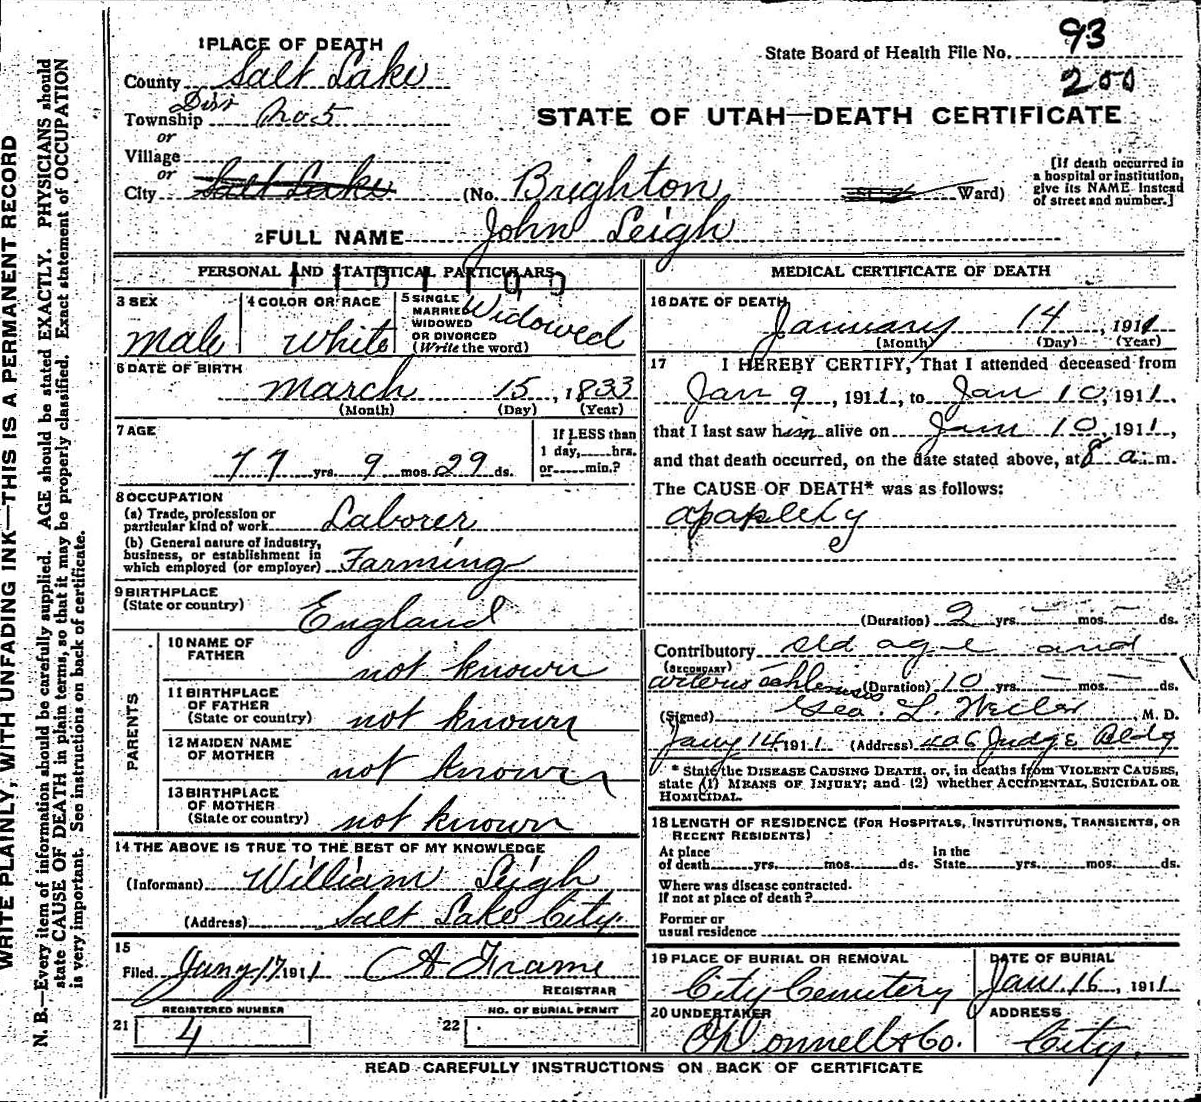 WRITE PLAINLY, WITH UNFADING INK—THIS IS A PERMANENT RECORD
N. B.—Every item of information should be carefully supplied. AGE should be stated EXACTLY. PHYSICIANS should
state CAUSE OF DEATH in plain terms, so that it may be properly classified. Exact statement of OCCUPATION
is very important. See instructions on back of certificate.
1 PLACE OF DEATH
County Salt Lake
Township Dist No 5
or
Village
or
City Salt Lake (No. Brighton Ward)
State Board of Health File No. 93
200
STATE OF UTAH—DEATH CERTIFICATE
[If death occurred in
a hospital or institution,
give its NAME instead
of street and number.]
2 FULL NAME John Leigh
PERSONAL AND STATISTICAL PARTICULARS
3 SEX
male
4 COLOR OR RACE
White
5 SINGLE
MARRIED
WIDOWED
OR DIVORCED
(Write the word)
Widowed
6 DATE OF BIRTH
March 15, 1833
(Month) (Day) (Year)
7 AGE
77 yrs. 9 mos. 29 ds.
If LESS than
1 day, hrs.
or min.?
8 OCCUPATION
(a) Trade, profession or
particular kind of work Laborer
(b) General nature of industry,
business, or establishment in
which employed (or employer) Farming
9 BIRTHPLACE
(State or country)
England
PARENTS
10 NAME OF
FATHER
not known
11 BIRTHPLACE
OF FATHER
(State or country)
not known
12 MAIDEN NAME
OF MOTHER
not known
13 BIRTHPLACE
OF MOTHER
(State or country)
not known
14 THE ABOVE IS TRUE TO THE BEST OF MY KNOWLEDGE
(Informant) William Leigh
(Address) Salt Lake City
15
Filed Jany 17 1911 A Frame
REGISTRAR
REGISTERED NUMBER
21 4
NO. OF BURIAL PERMIT
22
MEDICAL CERTIFICATE OF DEATH
16 DATE OF DEATH
January 14, 1911
(Month) (Day) (Year)
17 I HEREBY CERTIFY, That I attended deceased from
Jan 9, 1911, to Jan 10, 1911,
that I last saw him alive on Jan 10, 1911,
and that death occurred, on the date stated above, at 8 a. m.
The CAUSE OF DEATH* was as follows:
apoplexy
(Duration) 2 yrs. — mos. — ds.
Contributory old age and
(SECONDARY)
(Duration) 10 yrs. — mos. — ds.
(Signed) Geo. L. M. D.
Jany 14 1911 (Address) 406 Judge Bldg
* State the DISEASE CAUSING DEATH, or, in deaths from VIOLENT CAUSES,
state (1) MEANS OF INJURY; and (2) whether ACCIDENTAL, SUICIDAL OR
HOMICIDAL.
18 LENGTH OF RESIDENCE (FOR HOSPITALS, INSTITUTIONS, TRANSIENTS, OR
RECENT RESIDENTS)
At place
of death yrs. mos. ds.
In the
State yrs. mos. ds.
Where was disease contracted.
If not at place of death?
Former or
usual residence
19 PLACE OF BURIAL OR REMOVAL
City Cemetery
DATE OF BURIAL
Jan. 16, 1911
20 UNDERTAKER
O'Donnell & Co.
ADDRESS
City.
READ CAREFULLY INSTRUCTIONS ON BACK OF CERTIFICATE